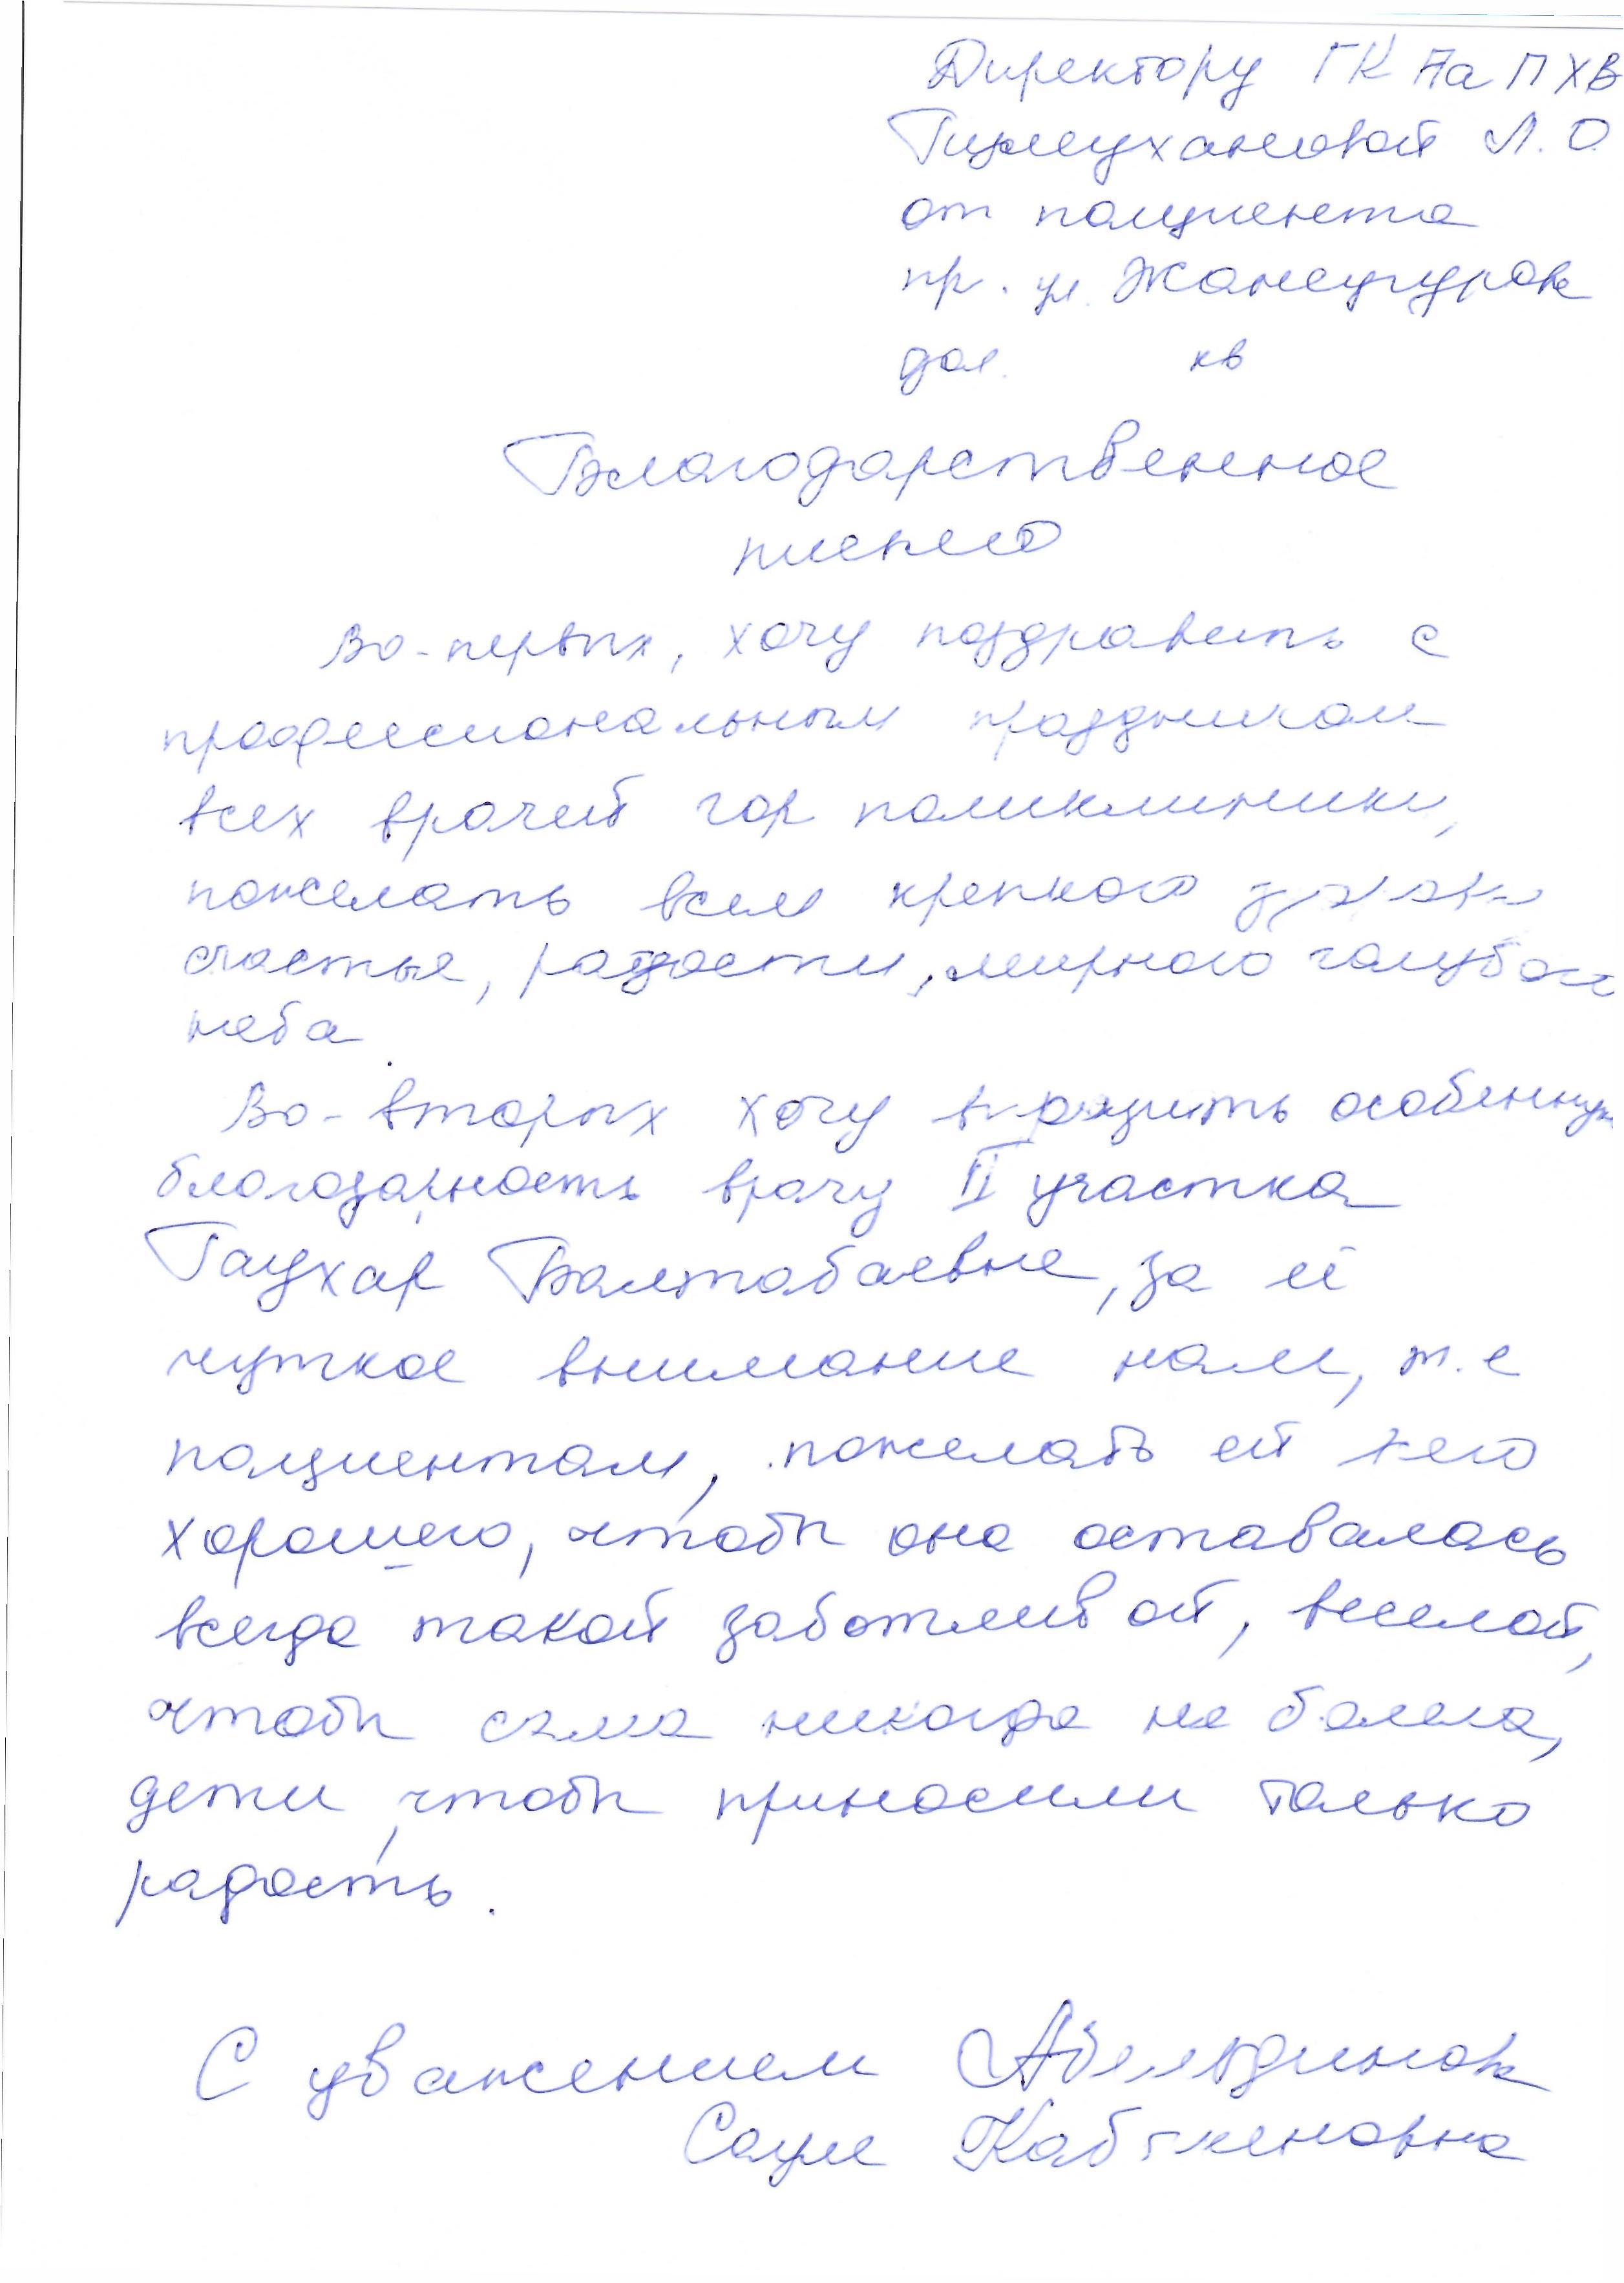 Директору ГК Па ПХВ
Л.О.
от пациента
пр. ул. Жансугуров
дом. кв
Благодарственное
письмо
Во-первых, хочу поздравить с
профессиональным праздником
всех врачей гор поликлиники,
пожелать всем крепкого
счастье, радости, мирного голубого
неба.
Во-вторых хочу выразить особенную
благодарность врачу II участка
Гаухар Балтабаевне, за её
чуткое внимание нам, т.е
пациентам, пожелать ей всего
хорошего, чтобы она оставалась
всегда такой заботливой, веселой,
чтобы сама никогда не болела,
дети, чтобы приносили только
радость.
С уважением
Сауле